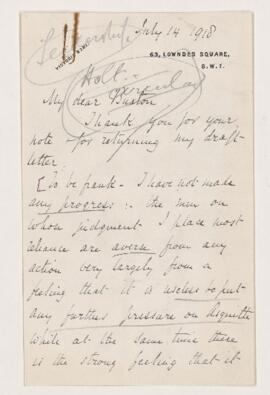 July 14 1918
Leadership
63, LOWNDES SQUARE,
S.W.1.
Holt
Circular
My dear Buxton
Thank you for your
note - for returning my draft-
letter.
[To be frank - I have not made
any progress :- the men on
whose judgment I place most
reliance are averse from any
action very largely from a
feeling that it is useless to put
any further pressure on Asquith
while at the same time there
is the strong feeling that it